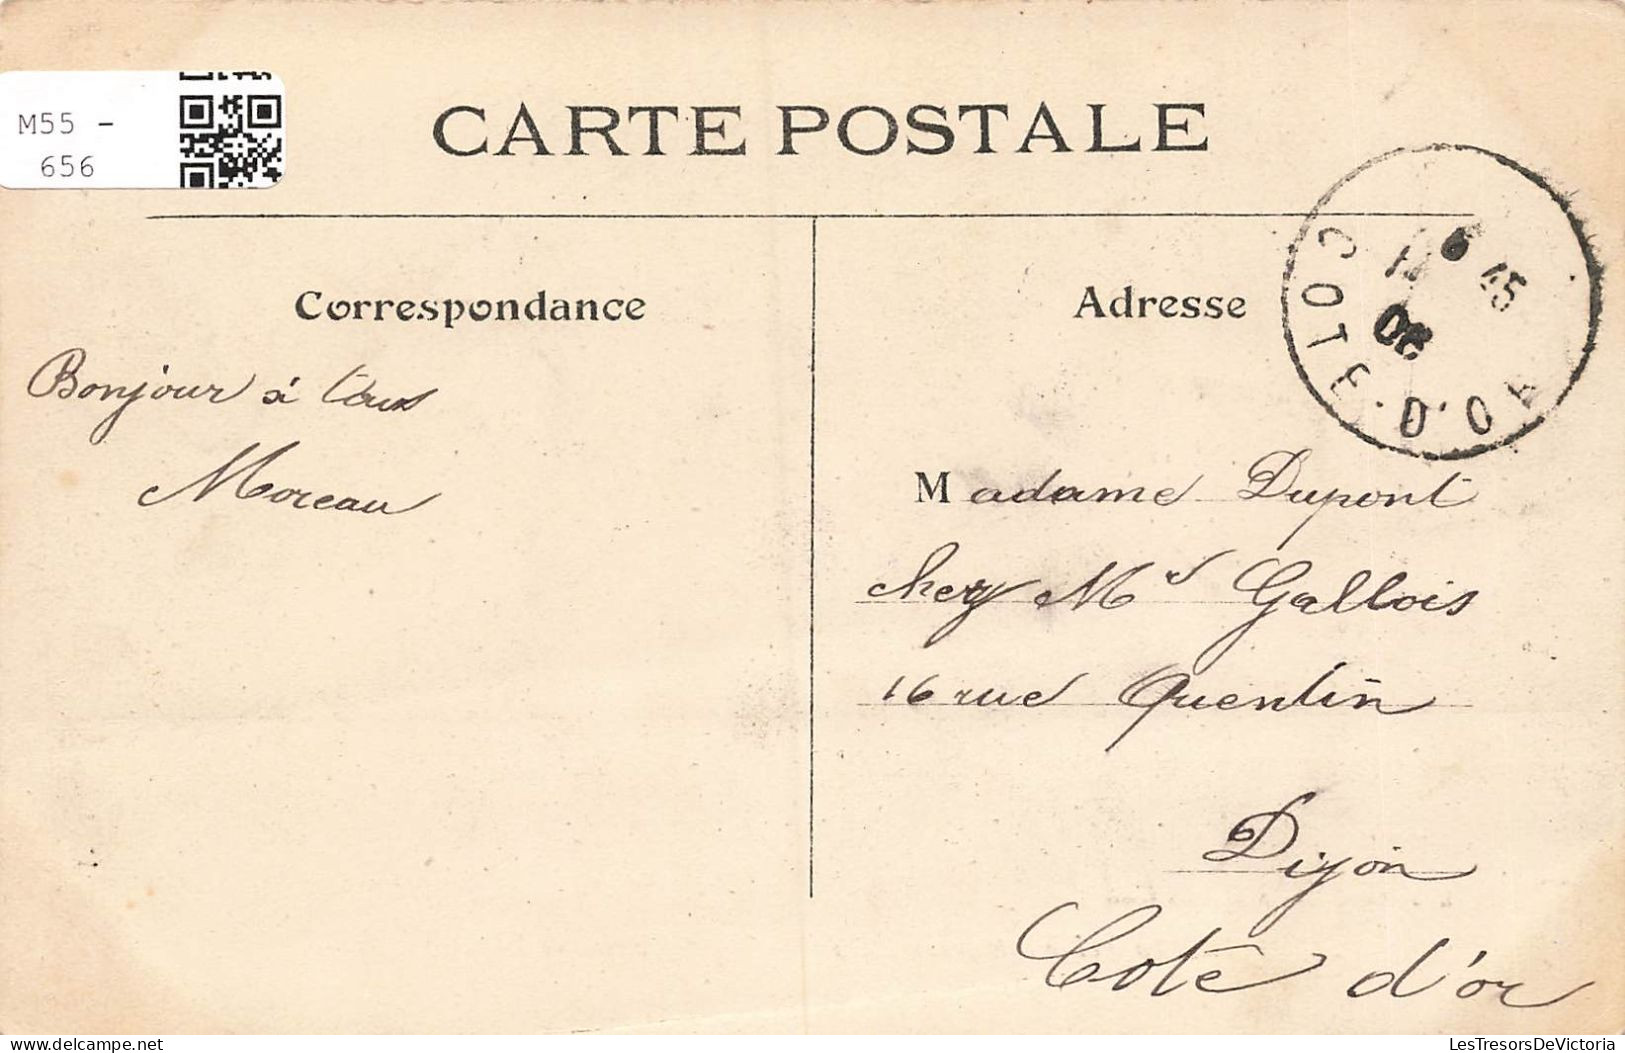 M55 -
656
CARTE POSTALE
Correspondance
Adresse
6 45
14
06
COTE-D'OR
Bonjour à tous
Moreau
Madame Dupont
chez Mr Gallois
16 rue Quentin
Dijon
Cote d'or
delcampe.net
LesTresorsDeVictoria